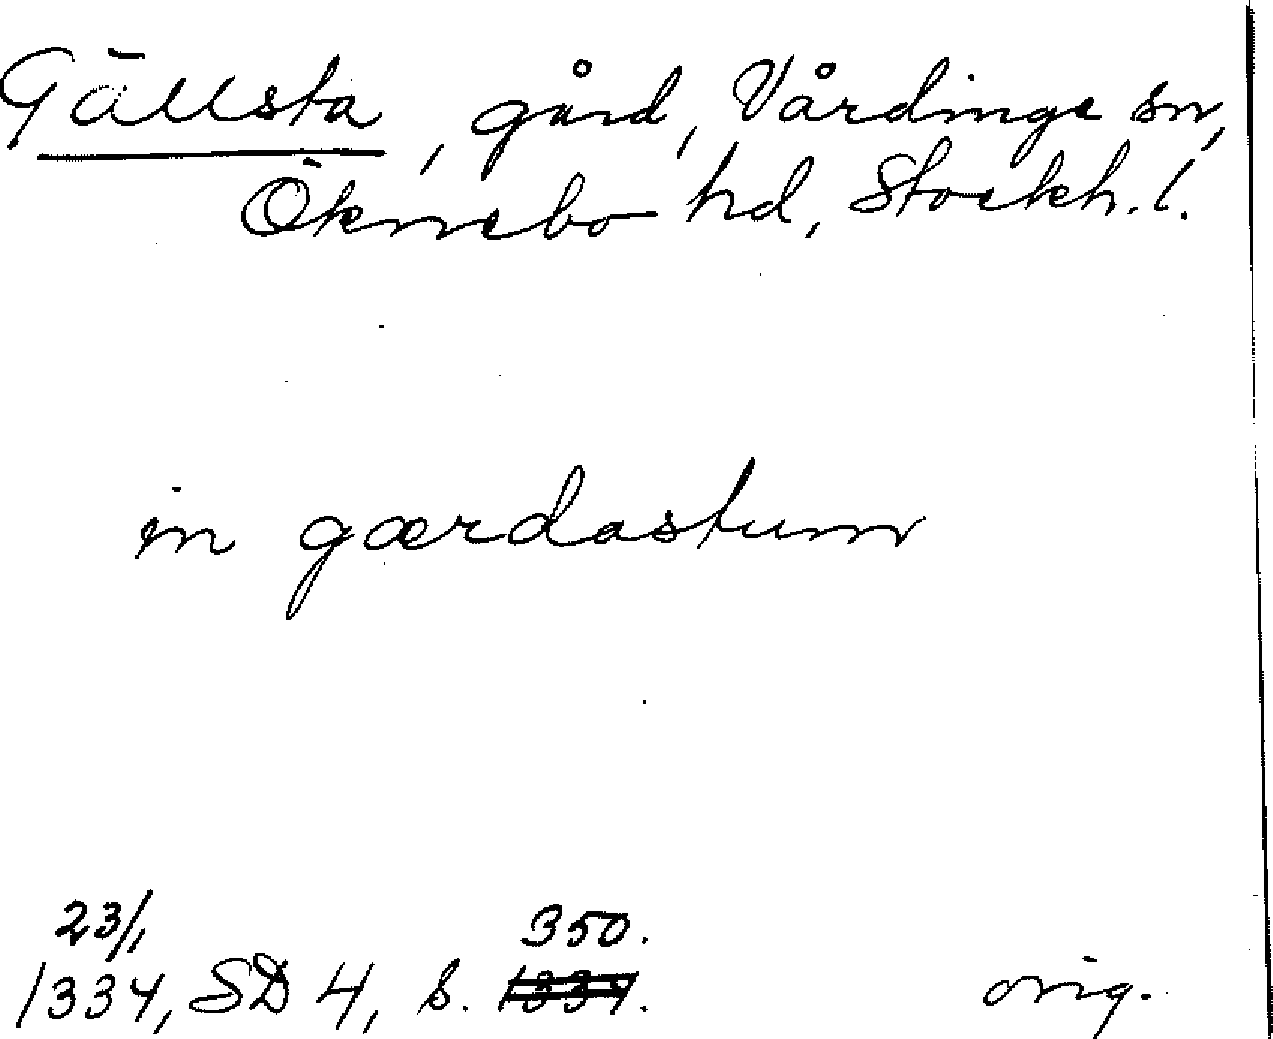 Gällsta, gård, Vårdinge sn,
Öknebo hd, Stockh. l.
in gærdastum
23/1 350.
1334, SD 4, s. 1334.
orig.